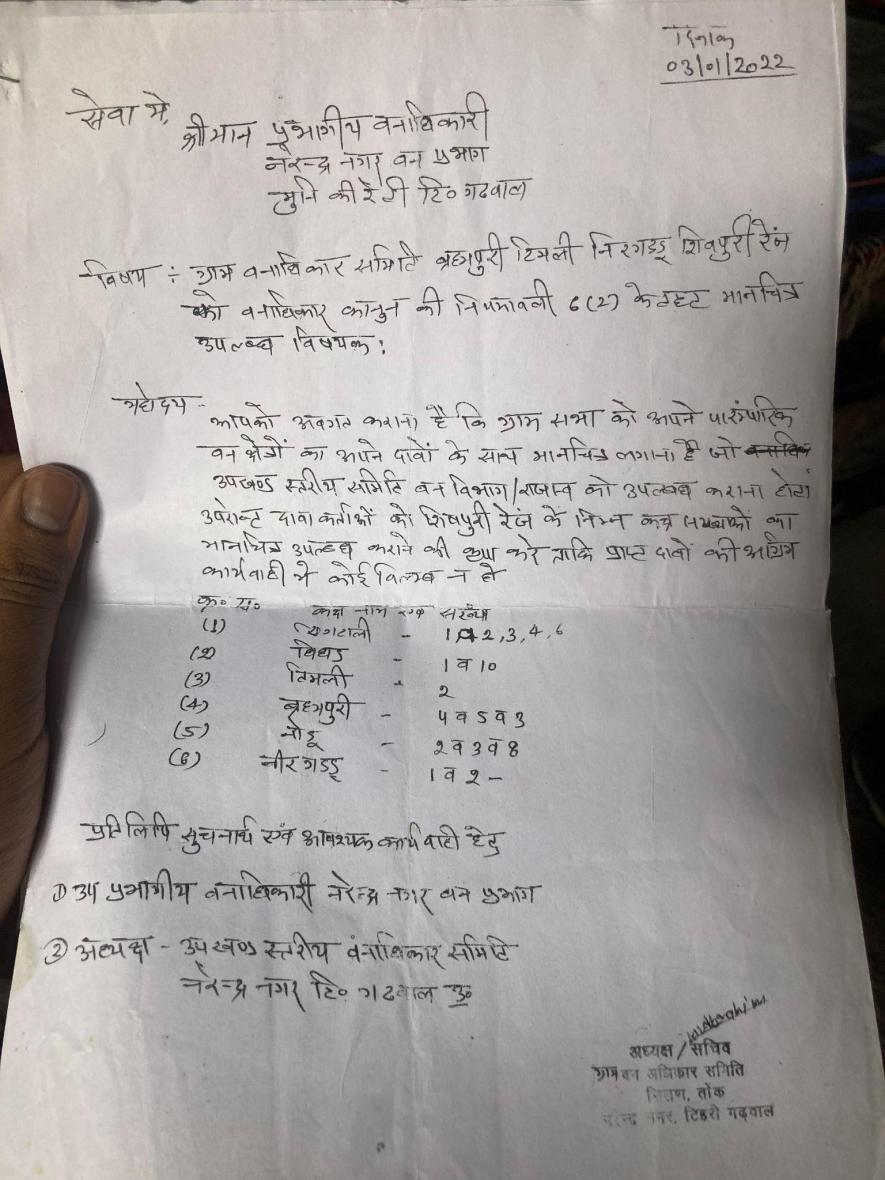 दिनांक
03/01/2022
सेवा मे,
श्रीमान प्रभागीय वनाधिकारी
नरेन्द्र नगर वन प्रभाग
मुनि की रेती टि० गढवाल
विषय :- ग्राम वनाधिकार समिति ब्रह्मपुरी टिमली निरगड्डू शिवपुरी रेंज
को वनाधिकार कानुन की नियमावली 6(2) के तहत मानचित्र
उपलब्ध विषयक:
महोदय -
आपको अवगत कराना है कि ग्राम सभा को अपने पारंम्पारिक
वन क्षेत्रों का अपने दावों के साथ मानचित्र लगाना है जो
उपखण्ड स्तरीय समिति वन विभाग/राजस्व को उपलब्ध कराना होता
उपरान्त दावा कर्ताओं को शिवपुरी रेंज के निम्न कक्ष का
मानचित्र उपलब्ध कराने की कृपा करे ताकि प्राप्त दावों की अग्रिम
कार्यवाही मे कोई विलम्ब न हो
क्र० सं० कक्ष नाम एवं संख्या
(1) - 1, 2, 3, 4, 6
(2) - 1 व 10
(3) तिमली - 2
(4) ब्रह्मपुरी - 4 व 5 व 3
(5) - 2 व 3 व 8
(6) नीरगड्डू - 1 व 2 -
प्रतिलिपि सुचनार्थ एवं आवश्यक कार्यवाही हेतु
① उप प्रभागीय वनाधिकारी नरेन्द्र नगर वन प्रभाग
② अध्यक्ष - उपखण्ड स्तरीय वनाधिकार समिति
नरेन्द्र नगर टि० गढवाल उ०
अध्यक्ष / सचिव
ग्राम वन अधिकार समिति
तोंक
नरेन्द्र नगर, टिहरी गढ़वाल